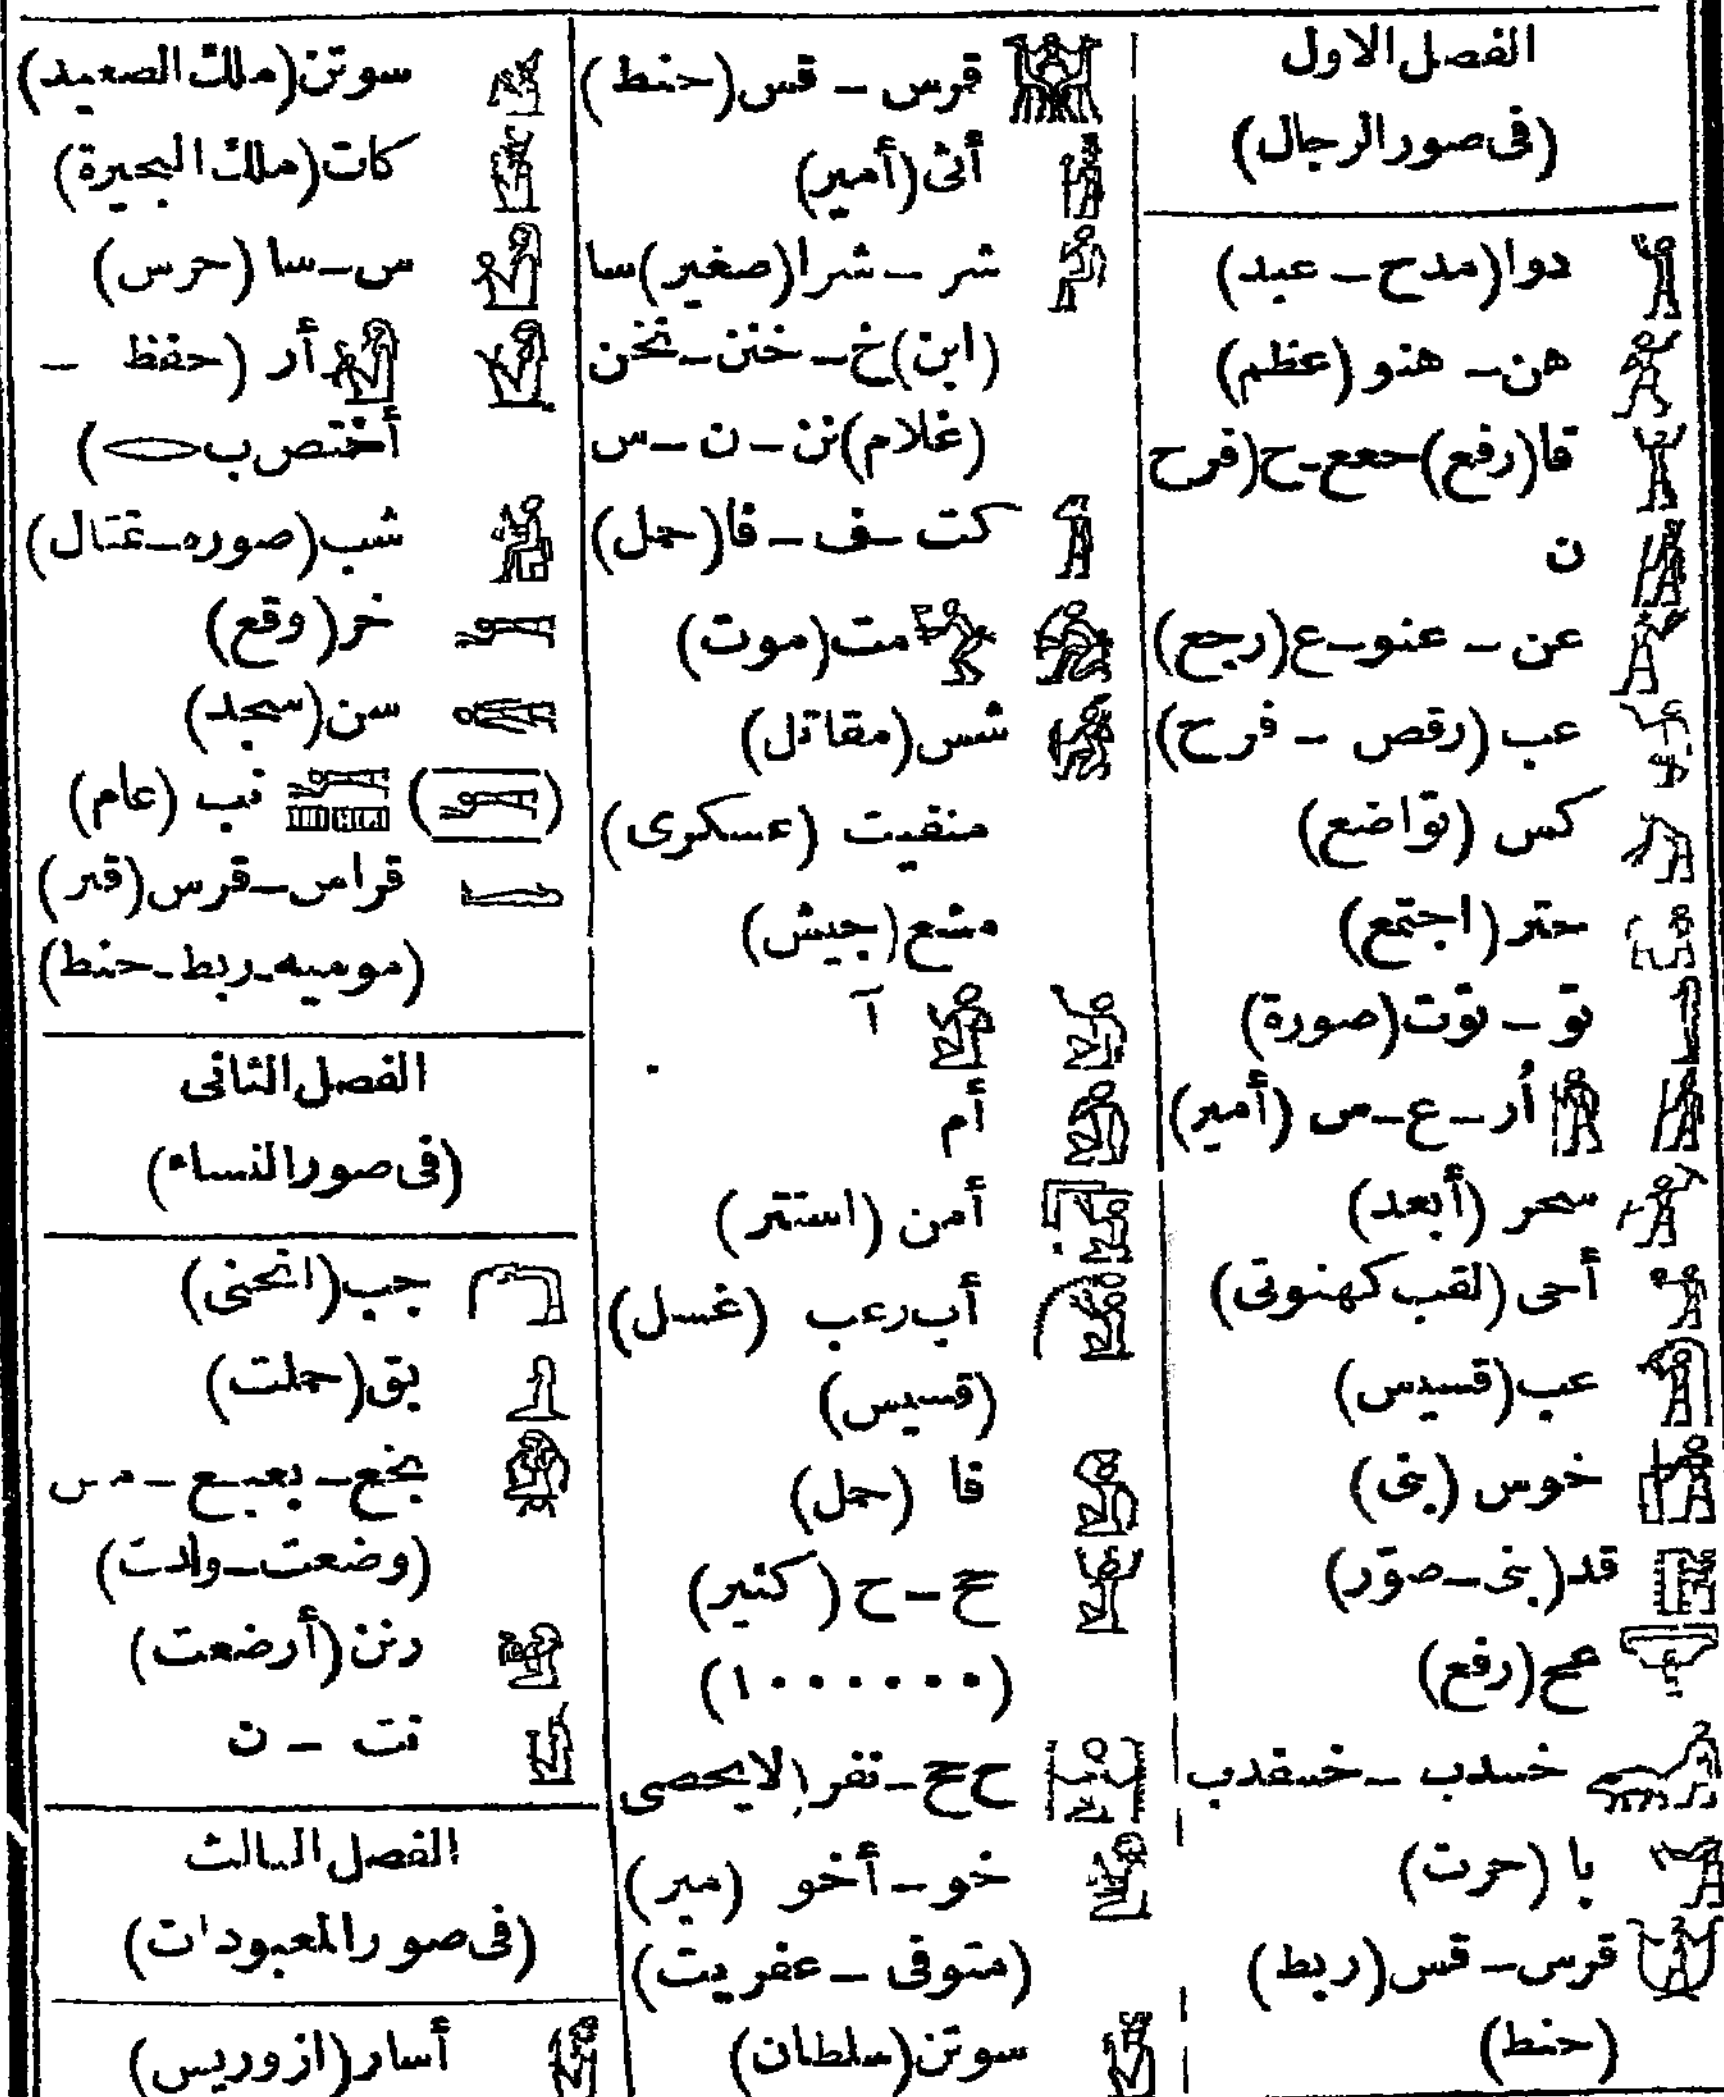 الفصل الاول
(فى صور الرجال)
دوا (مدح - عبد)
هن - هنو (عظم)
قا (رفع) حعع - ح (فرح
ن
عن - عنو - ع (رجع)
عب (رقص - فرح)
كس (تواضع)
حتر (اجتمع)
تو - توت (صورة)
أر - ع - س (أمير)
سحر (أبعد)
أحى (لقب كهنوتى)
عب (قسيس)
خوس (بنى)
قد (بنى - صوّر)
عح (رفع)
خسدب - خسفدب
با (حرت)
قرس - قس (ربط)
(حنط)
قرس - قس (حنط)
أثى (أمير)
شر - شرا (صغير) سا
(ابن) خ - خنن - نخن
(غلام) نن - ن - س
كت - ف - فا (حمل)
مت (موت)
شس (مقاتل)
منفيت (عسكرى)
مشع (جيش)
آ
أم
أمن (استتر)
أب رعب (غسل)
(قسيس)
فا (حمل)
حح - ح (كثير)
(١٠٠٠٠٠٠)
ح حح - نفر (لايحصى
خو - أخو (مير)
(متوفى - عفريت)
سوتن (سلطان)
سوتن (ملك الصعيد)
كات (ملك البحيرة)
س - سا (حرس)
أر (حفظ -
أختص ب)
شب (صوره - تمثال)
خر (وقع)
سن (سجد)
نب (عام)
قراس - قرس (قبر)
(موميه - ربط - حنط)
الفصل الثانى
(فى صور النساء)
جب (انحنى)
بق (حملت)
بخع - بعبع - مس
(وضعت - ولدت)
رنن (أرضعت)
نت - ن
الفصل الثالث
(فى صور المعبودات)
أسار (ازوريس)